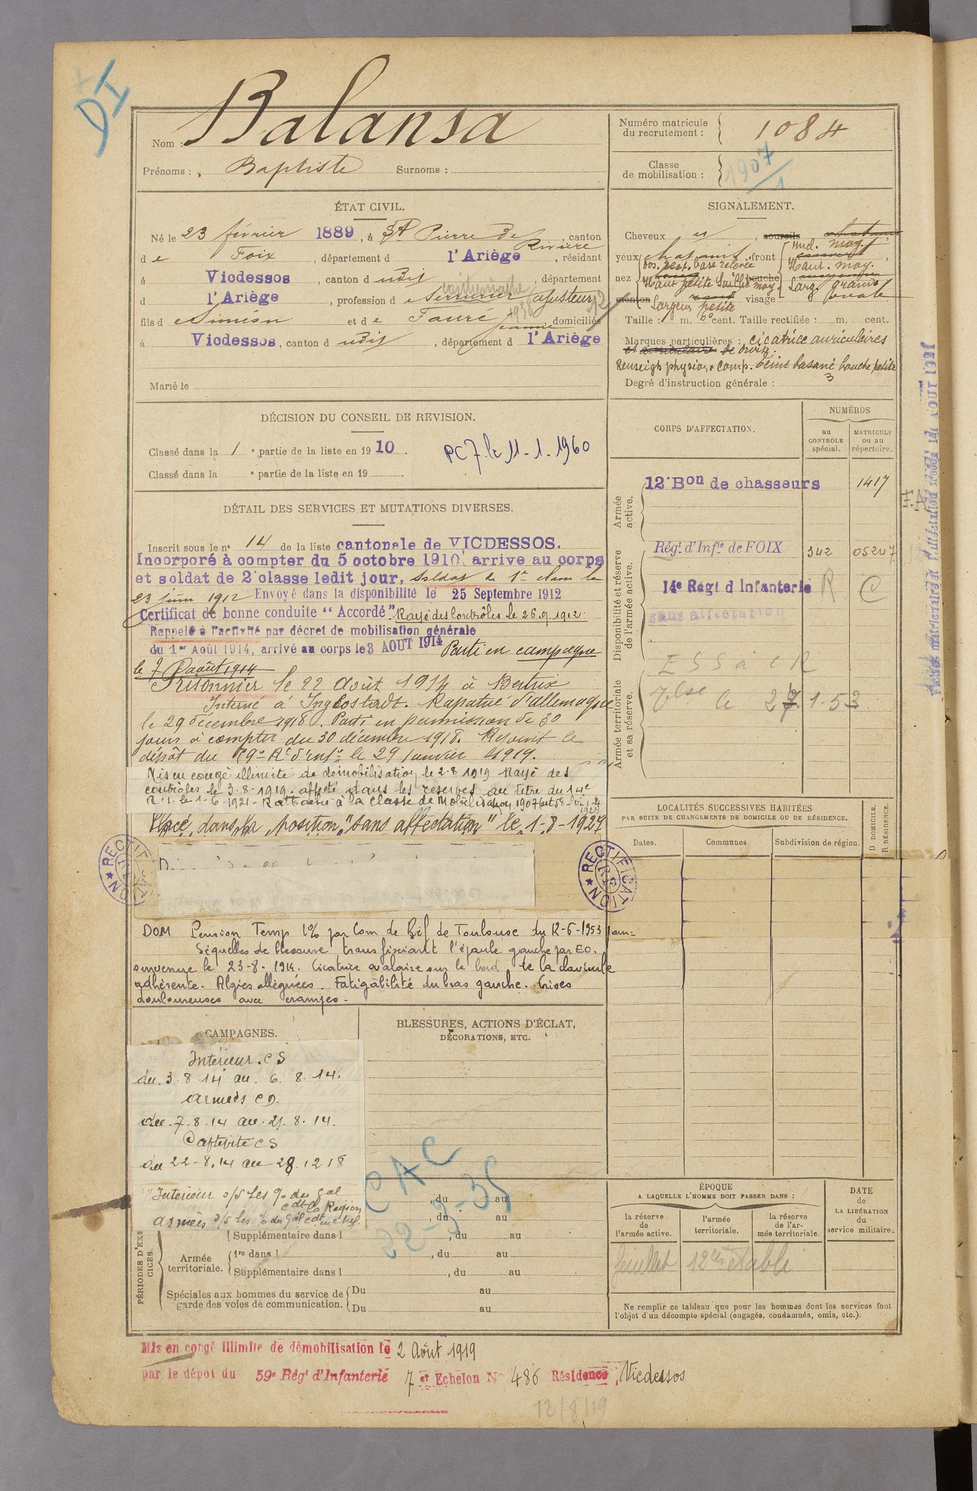 DI
Nom : Balansa
Prénoms : Baptiste Surnoms :
Numéro matricule du recrutement : 1084
Classe de mobilisation : 1907
ÉTAT CIVIL.
Né le 23 février 1889, à St Pierre de Rivière, canton
de Foix, département d l'Ariège, résidant
à Vicdessos, canton d udit, département
d l'Ariège, profession de Serrurier ajusteur
fils de Siméon et de Fauré Jeanne domiciliés
à Vicdessos, canton d udit, département d l'Ariège
Marié le
SIGNALEMENT.
Cheveux sourcils
yeux front
nez dos base relevée Haut. petite Saillie moy bouche
Haut. moy. Larg. grande
menton Largeur petite visage ovale
Taille : 1 m. cent. Taille rectifiée : m. cent.
Marques particulières : cicatrice auriculaires
Renseigts physion. comp. teint basané bouche petite
Degré d'instruction générale : 3
DÉCISION DU CONSEIL DE REVISION.
Classé dans la 1 e partie de la liste en 1910.
Classé dans la e partie de la liste en 19
PC 7 le 11-1-1960
CORPS D'AFFECTATION.
NUMÉROS
au CONTROLE spécial.
MATRICULE ou au répertoire.
Armée active.
12e Bon de chasseurs 1417
Disponibilité et réserve de l'armée active.
Régt d'Infie de FOIX 342 05247
14e Regt d Infanterie R C
sans affectation
Armée territoriale et sa réserve.
DÉTAIL DES SERVICES ET MUTATIONS DIVERSES.
Inscrit sous le n° 14 de la liste cantonale de VICDESSOS.
Incorporé à compter du 5 octobre 1910, arrive au corps
et soldat de 2e classe ledit jour, Soldat de 1re classe le
23 juin 1912 Envoyé dans la disponibilité le 25 Septembre 1912
Certificat de bonne conduite "Accordé". Rayé des contrôles le 26.9.1912
Rappelé à l'activité par décret de mobilisation générale
du 1er Août 1914, arrivé au corps le 3 AOUT 1914 Parti en campagne
le 7 août 1914
Prisonnier le 22 Août 1914 à Bertrix
Interné à Inglostadt. Rapatrié d'Allemagne
le 29 décembre 1918. Parti en permission de 30
jours à compter du 30 décembre 1918. Rejoint le
dépôt du 59e Rt d'Infie le 29 Janvier 1919.
Mis en congé illimité de démobilisation le 2-8-1919 Rayé des
contrôles le 3-8-1919. affecté dans les réserves au titre du 14e
R.I. le 1-6-1921. Rattaché à la classe de Mobilisation 1907
Placé dans la position "sans affectation" le 1-8-1927
RECTIFICATION
RECTIFICATION
DOM Pension Temp 10% par Com de Rf de Toulouse du 12-6-1953 pour:
Séquelles de blessure transfixiant l'épaule gauche par E.O.
survenue le 23-8-1914. Cicatrice ovalaire sur le bord de la clavicule
adhérente. Algies alléguées. Fatigabilité du bras gauche. Crises
douloureuses avec crampes.
LOCALITÉS SUCCESSIVES HABITÉES
PAR SUITE DE CHANGEMENTS DE DOMICILE OU DE RÉSIDENCE.
Dates. Communes Subdivision de région. D DOMICILE. R RÉSIDENCE.
CAMPAGNES.
Intérieur. C S
du. 3.8.14 au. 6.8.14.
Armées C D.
du. 7.8.14 au. 21.8.14.
Captivité C S
du 22-8.14 au 28.12 18
BLESSURES, ACTIONS D'ÉCLAT,
DÉCORATIONS, ETC.
CAC
22-3-35
, du au
, du au
PÉRIODES D'EXERCICES.
Supplémentaire dans l , du au
Armée territoriale.
1re dans l , du au
Supplémentaire dans l , du au
Spéciales aux hommes du service de garde des voies de communication.
Du au
Du au
ÉPOQUE
A LAQUELLE L'HOMME DOIT PASSER DANS :
la réserve de l'armée active. l'armée territoriale. la réserve de l'armée territoriale.
DATE de LA LIBÉRATION du service militaire.
Ne remplir ce tableau que pour les hommes dont les services font
l'objet d'un décompte spécial (engagés, condamnés, omis, etc.).
Mis en congé illimité de démobilisation le 2 Août 1919
par le dépôt du 59e Régt d'Infanterie 7 et Echelon N° 486 Résidence Vicdessos
12/8/19